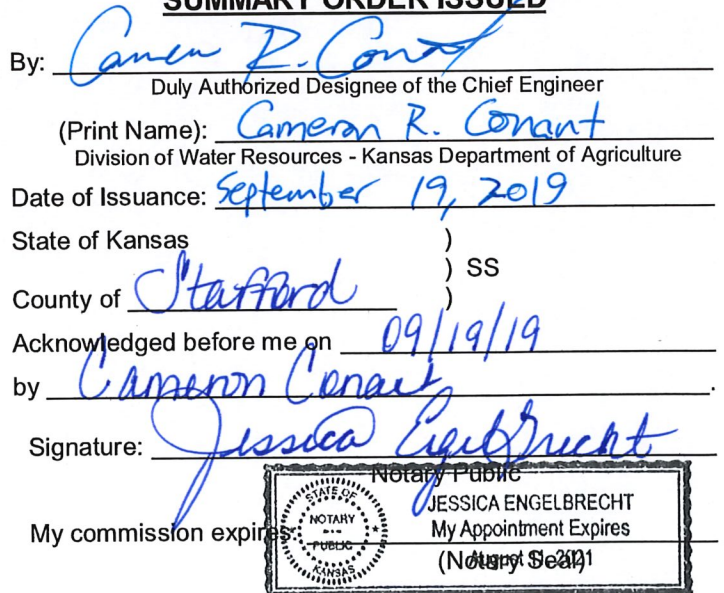 SUMMARY ORDER ISSUED
By: Cameron R. Conant
Duly Authorized Designee of the Chief Engineer
(Print Name): Cameron R. Conant
Division of Water Resources - Kansas Department of Agriculture
Date of Issuance: September 19, 2019
State of Kansas )
) SS
County of Stafford )
Acknowledged before me on 09/19/19
by Cameron Conant.
Signature: Jessica Engelbrecht
Notary Public
STATE OF KANSAS
NOTARY PUBLIC
JESSICA ENGELBRECHT
My Appointment Expires
My commission expires:
(Notary Seal)
August 2021